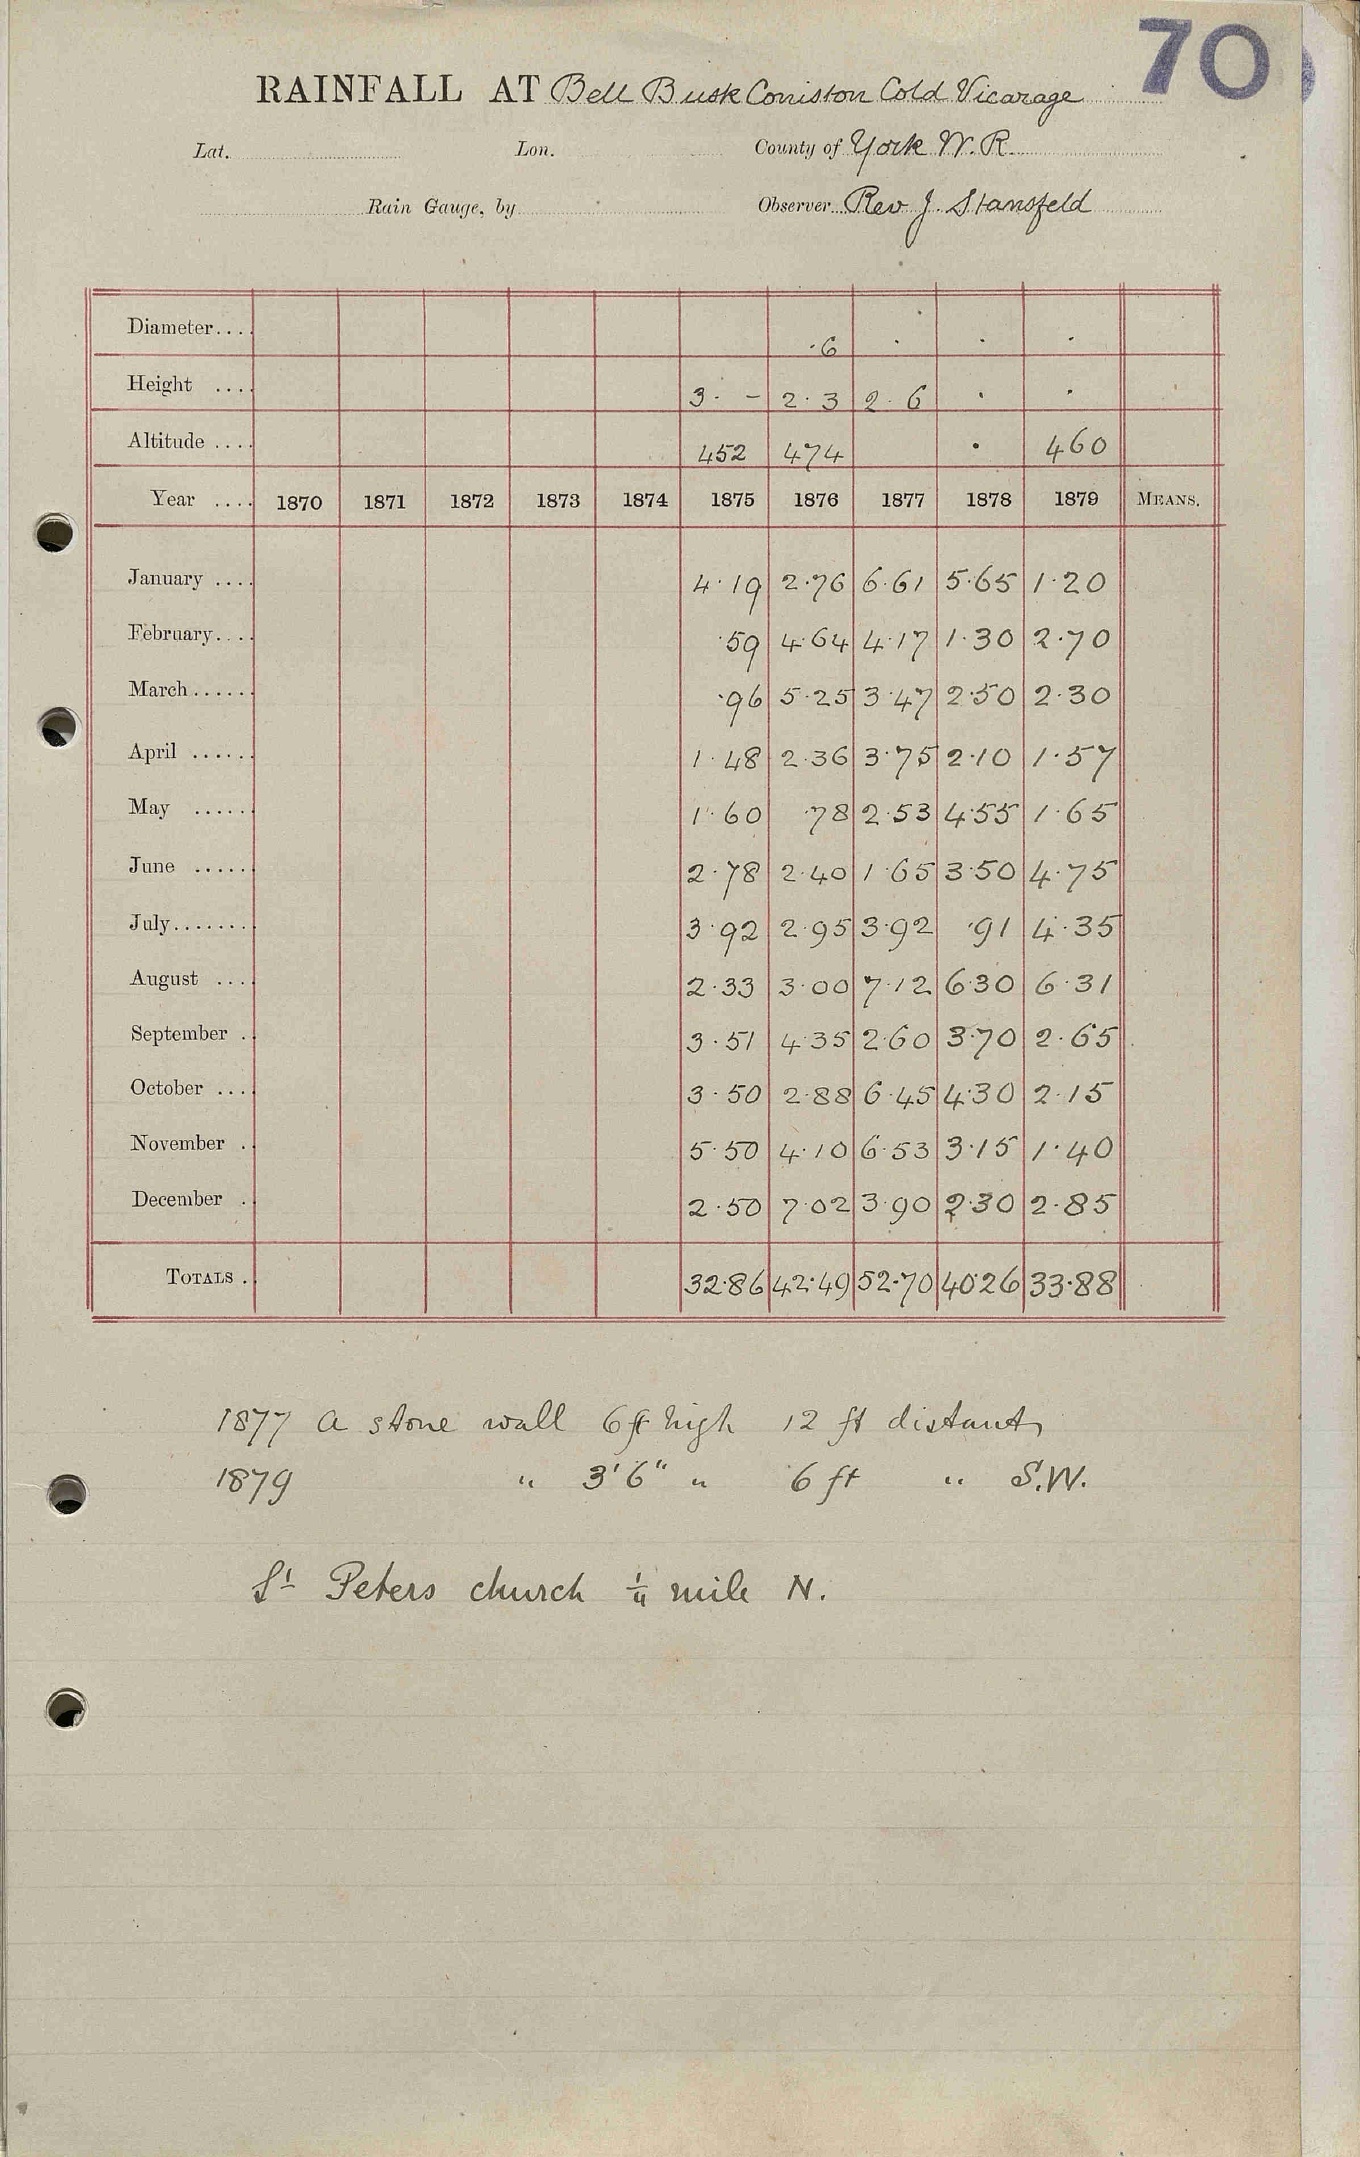 70
RAINFALL AT Bell Busk Coniston Cold Vicarage
Lat. Lon. County of York W. R.
Rain Gauge, by Observer Rev J. Stansfeld
Diameter.... ·6 · · ·
Height .... 3· - 2·3 2·6 · ·
Altitude .... 452 474 · 460
Year .... 1870 1871 1872 1873 1874 1875 1876 1877 1878 1879 MEANS.
January .... 4·19 2·76 6·61 5·65 1·20
February.... ·59 4·64 4·17 1·30 2·70
March...... ·96 5·25 3·47 2·50 2·30
April ...... 1·48 2·36 3·75 2·10 1·57
May ...... 1·60 ·78 2·53 4·55 1·65
June ...... 2·78 2·40 1·65 3·50 4·75
July........ 3·92 2·95 3·92 ·91 4·35
August .... 2·33 3·00 7·12 6·30 6·31
September . 3·51 4·35 2·60 3·70 2·65
October .... 3·50 2·88 6·45 4·30 2·15
November . 5·50 4·10 6·53 3·15 1·40
December . 2·50 7·02 3·90 2·30 2·85
TOTALS . 32·86 42·49 52·70 40·26 33·88
1877 a stone wall 6 ft high 12 ft distant
1879 " 3'6" " 6 ft " S.W.
St Peters church ¼ mile N.